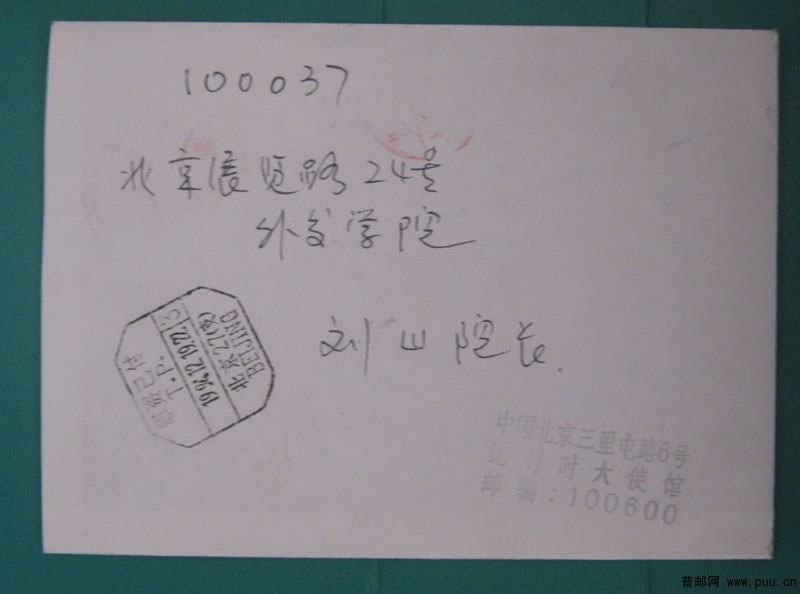 100037
北京展览路24号
外交学院
刘山院长.
国内邮资已付
T.P.
1994.12.19.22
北京27(支)
BEIJING
中国北京三里屯路6号
比利时大使馆
邮编:100600
普邮网 www.puu.cn